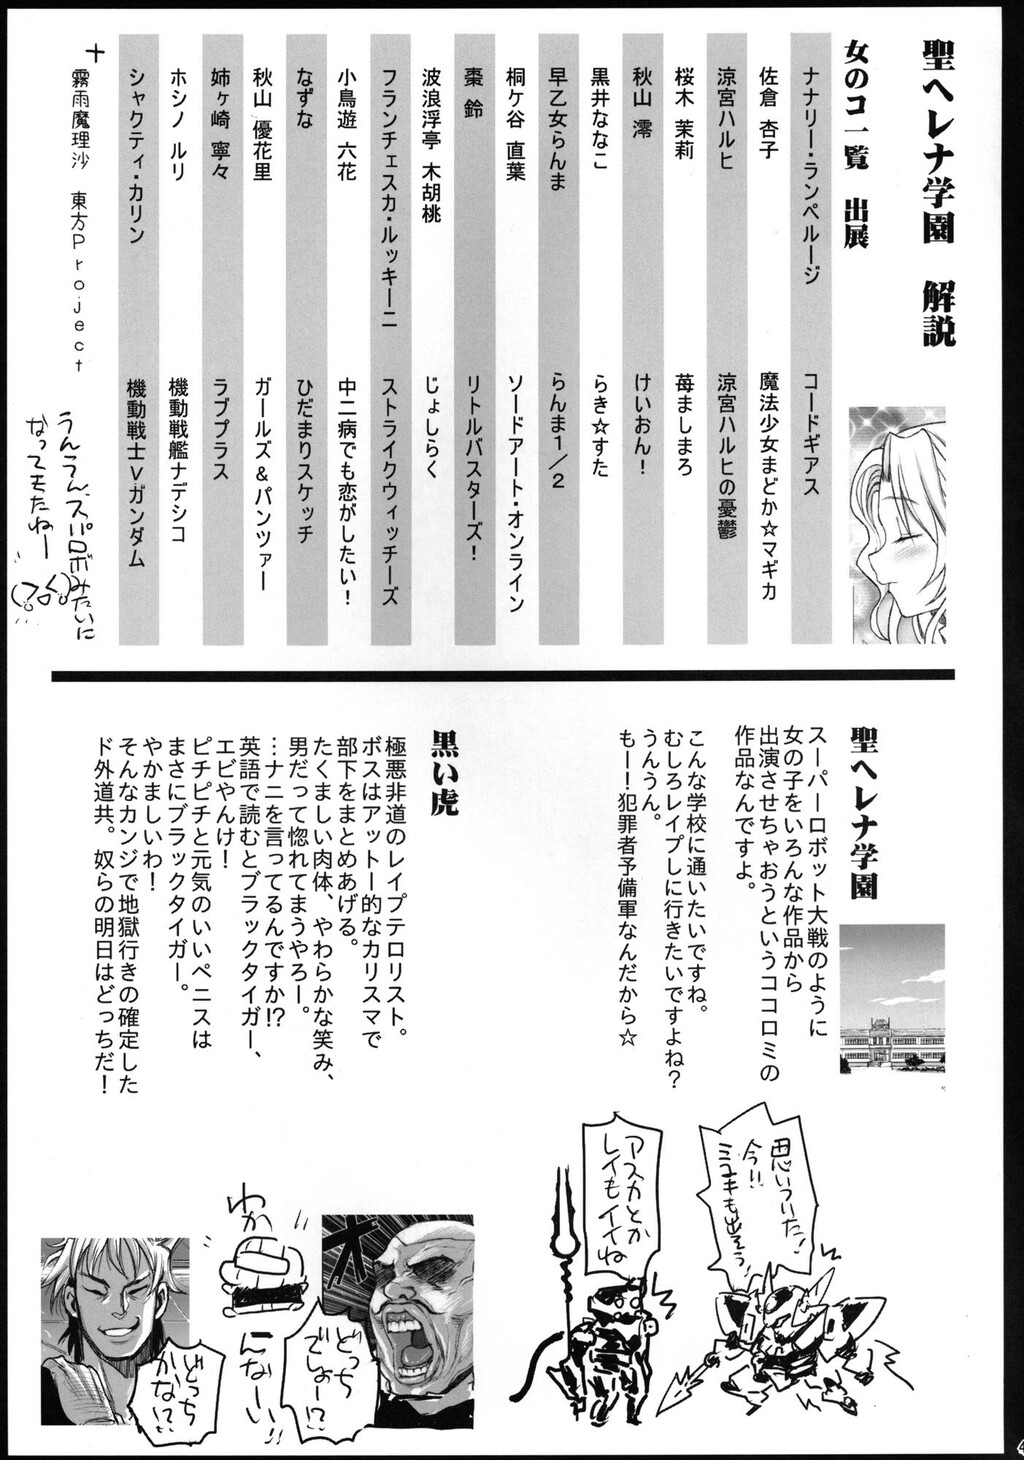 聖ヘレナ学園　解説
女のコ一覧　出展
ナナリー・ランペルージ　コードギアス
佐倉 杏子　魔法少女まどか☆マギカ
涼宮ハルヒ　涼宮ハルヒの憂鬱
桜木 茉莉　苺ましまろ
秋山 澪　けいおん！
黒井ななこ　らき☆すた
早乙女らんま　らんま１／２
桐ケ谷 直葉　ソードアート・オンライン
棗 鈴　リトルバスターズ！
波浪浮亭 木胡桃　じょしらく
フランチェスカ・ルッキーニ　ストライクウィッチーズ
小鳥遊 六花　中二病でも恋がしたい！
なずな　ひだまりスケッチ
秋山 優花里　ガールズ&パンツァー
姉ヶ崎 寧々　ラブプラス
ホシノ ルリ　機動戦艦ナデシコ
シャクティ・カリン　機動戦士Ｖガンダム
＋
霧雨魔理沙　東方Project
うんうん、スパロボみたいに
なってきたねー
聖ヘレナ学園
スーパーロボット大戦のように
女の子をいろんな作品から
出演させちゃおうというココロミの
作品なんですよ。
こんな学校に通いたいですね。
むしろレイプしに行きたいですよね？
うんうん。
もー！犯罪者予備軍なんだから☆
思いついた！
今!!
ミユキも出そう！
アスカとか
レイもイイね
黒い虎
極悪非道のレイプテロリスト。
ボスはアットー的なカリスマで
部下をまとめあげる。
たくましい肉体、やわらかな笑み、
男だって惚れてまうやろー。
…ナニを言ってるんですか!?
英語で読むとブラックタイガー、
エビやんけ！
ピチピチと元気のいいペニスは
まさにブラックタイガー。
やかましいわ！
そんなカンジで地獄行きの確定した
ド外道共。奴らの明日はどっちだ！
どっち
でしょー!?
わか
んなーい!!
どっち
かな!?
4